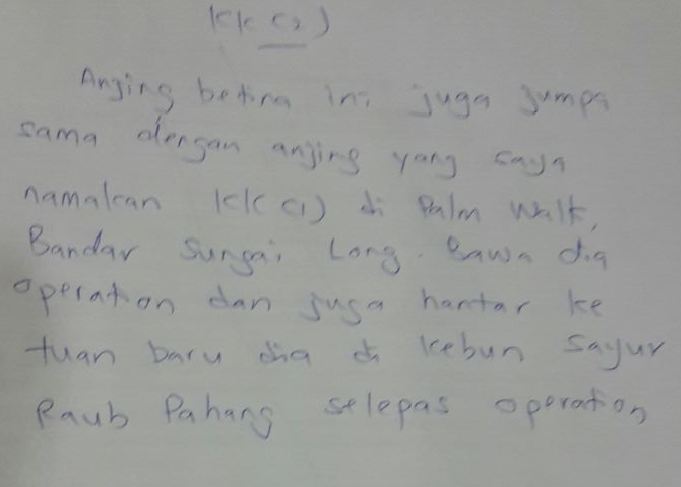 KK (2)
Anjing betina ini juga jumpa
sama dengan anjing yang saya
namakan KK (1) di Palm Walk,
Bandar Sungai Long. Bawa dia
operation dan juga hantar ke
tuan baru dia di kebun sayur
Raub Pahang selepas operation